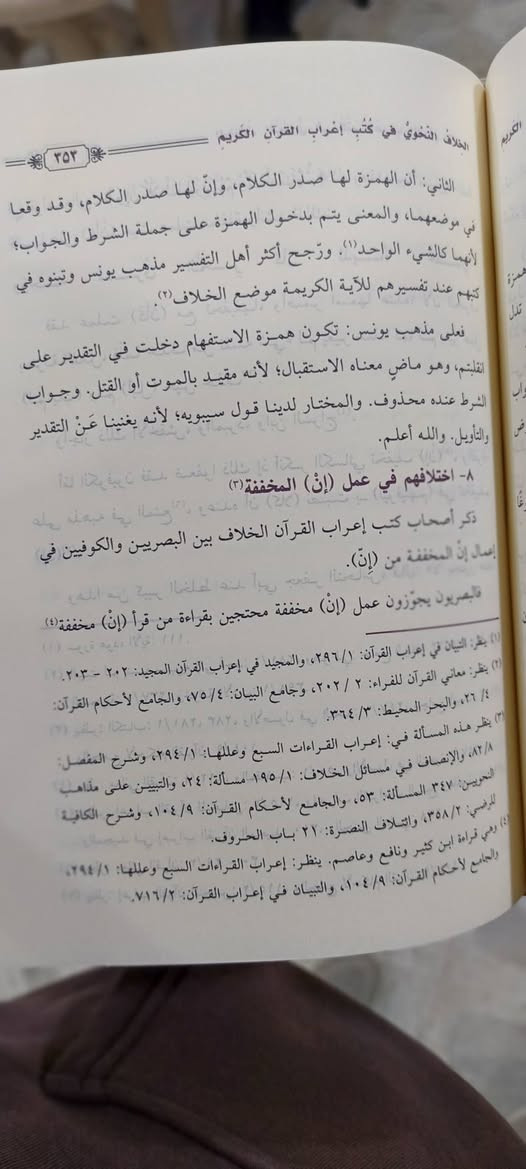 الخلاف النحويُّ في كُتُبِ إعْرابِ القرآنِ الكَريمِ
٣٥٣
الثاني: أن الهمزة لها صدر الكلام، وإنّ لها صدر الكلام، وقد وقعا
في موضعهما، والمعنى يتم بدخول الهمزة على جملة الشرط والجواب؛
لأنهما كالشيء الواحد(١). ورّجح أكثر أهل التفسير مذهب يونس وتبنوه في
كتبهم عند تفسيرهم للآية الكريمة موضع الخلاف(٢)
فعلى مذهب يونس: تكون همزة الاستفهام دخلت في التقدير على
انقلبتم، وهو ماضٍ معناه الاستقبال؛ لأنه مقيد بالموت أو القتل. وجواب
الشرط عنده محذوف. والمختار لدينا قول سيبويه؛ لأنه يغنينا عَنْ التقدير
والتأويل. والله أعلم.
٨- اختلافهم في عمل (إنْ) المخففة(٣)
ذكر أصحاب كتب إعراب القرآن الخلاف بين البصريين والكوفيين في
إعمال إنْ المخففة من (إنّ).
فالبصريون يجوّزون عمل (إنْ) مخففة محتجين بقراءة من قرأ (إنْ) مخففة(٤)
(١) ينظر: التبيان في إعراب القرآن: ٢٩٦/١، والمجيد في إعراب القرآن المجيد: ٢٠٢ - ٢٠٣.
(٢) ينظر: معاني القرآن للفراء: ٢/ ٢٠٢، وجامع البيان: ٧٥/٤، والجامع لأحكام القرآن:
٤/ ٢٦، والبحر المحيط: ٣٦٤/٣.
(٣) ينظر هذه المسألة في: إعراب القراءات السبع وعللها: ٢٩٤/١، وشرح المفصل:
٨٢/٨، والإنصاف في مسائل الخلاف: ١٩٥/١ مسألة: ٢٤، والتبيين على مذاهب
النحويين: ٣٤٧ المسألة: ٥٣، والجامع لأحكام القرآن: ١٠٤/٩، وشرح الكافية
للرضي: ٣٥٨/٢، وائتلاف النصرة: ٢١ باب الحروف.
(٤) وهي قراءة ابن كثير ونافع وعاصم. ينظر: إعراب القراءات السبع وعللها: ٢٩٤/١،
والجامع لأحكام القرآن: ١٠٤/٩، والتبيان في إعراب القرآن: ٧١٦/٢.